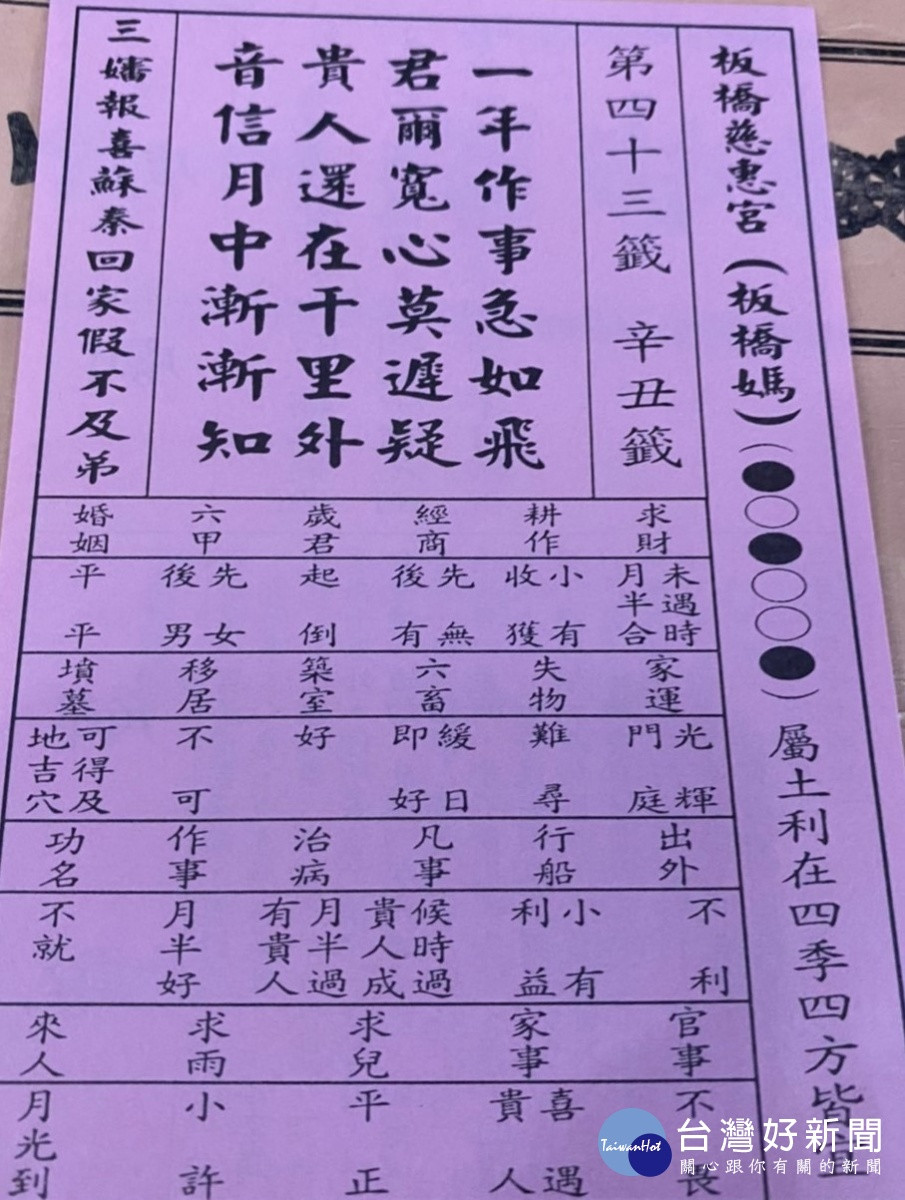 板橋慈惠宮（板橋媽）（●○●○○●）屬土利在四季四方皆宜
第四十三籤 辛丑籤
一年作事急如飛
君爾寬心莫遲疑
貴人還在千里外
音信月中漸漸知
三嬸報喜蘇秦回家假不及弟
求財 未遇時月半合
耕作 小有收獲
經商 先無後有
歲君 起倒
六甲 先女後男
婚姻 平平
家運 光輝門庭
失物 難尋
六畜 緩日即好
築室 好
移居 不可
墳墓 可得及地吉穴
出外 不利
行船 小有利益
凡事 候時過貴人成
治病 月半過有貴人
作事 月半好
功名 不就
官事 不
家事 喜遇貴人
求兒 平正
求雨 小許
來人 月光到
TaiwanHot
台灣好新聞
關心跟你有關的新聞